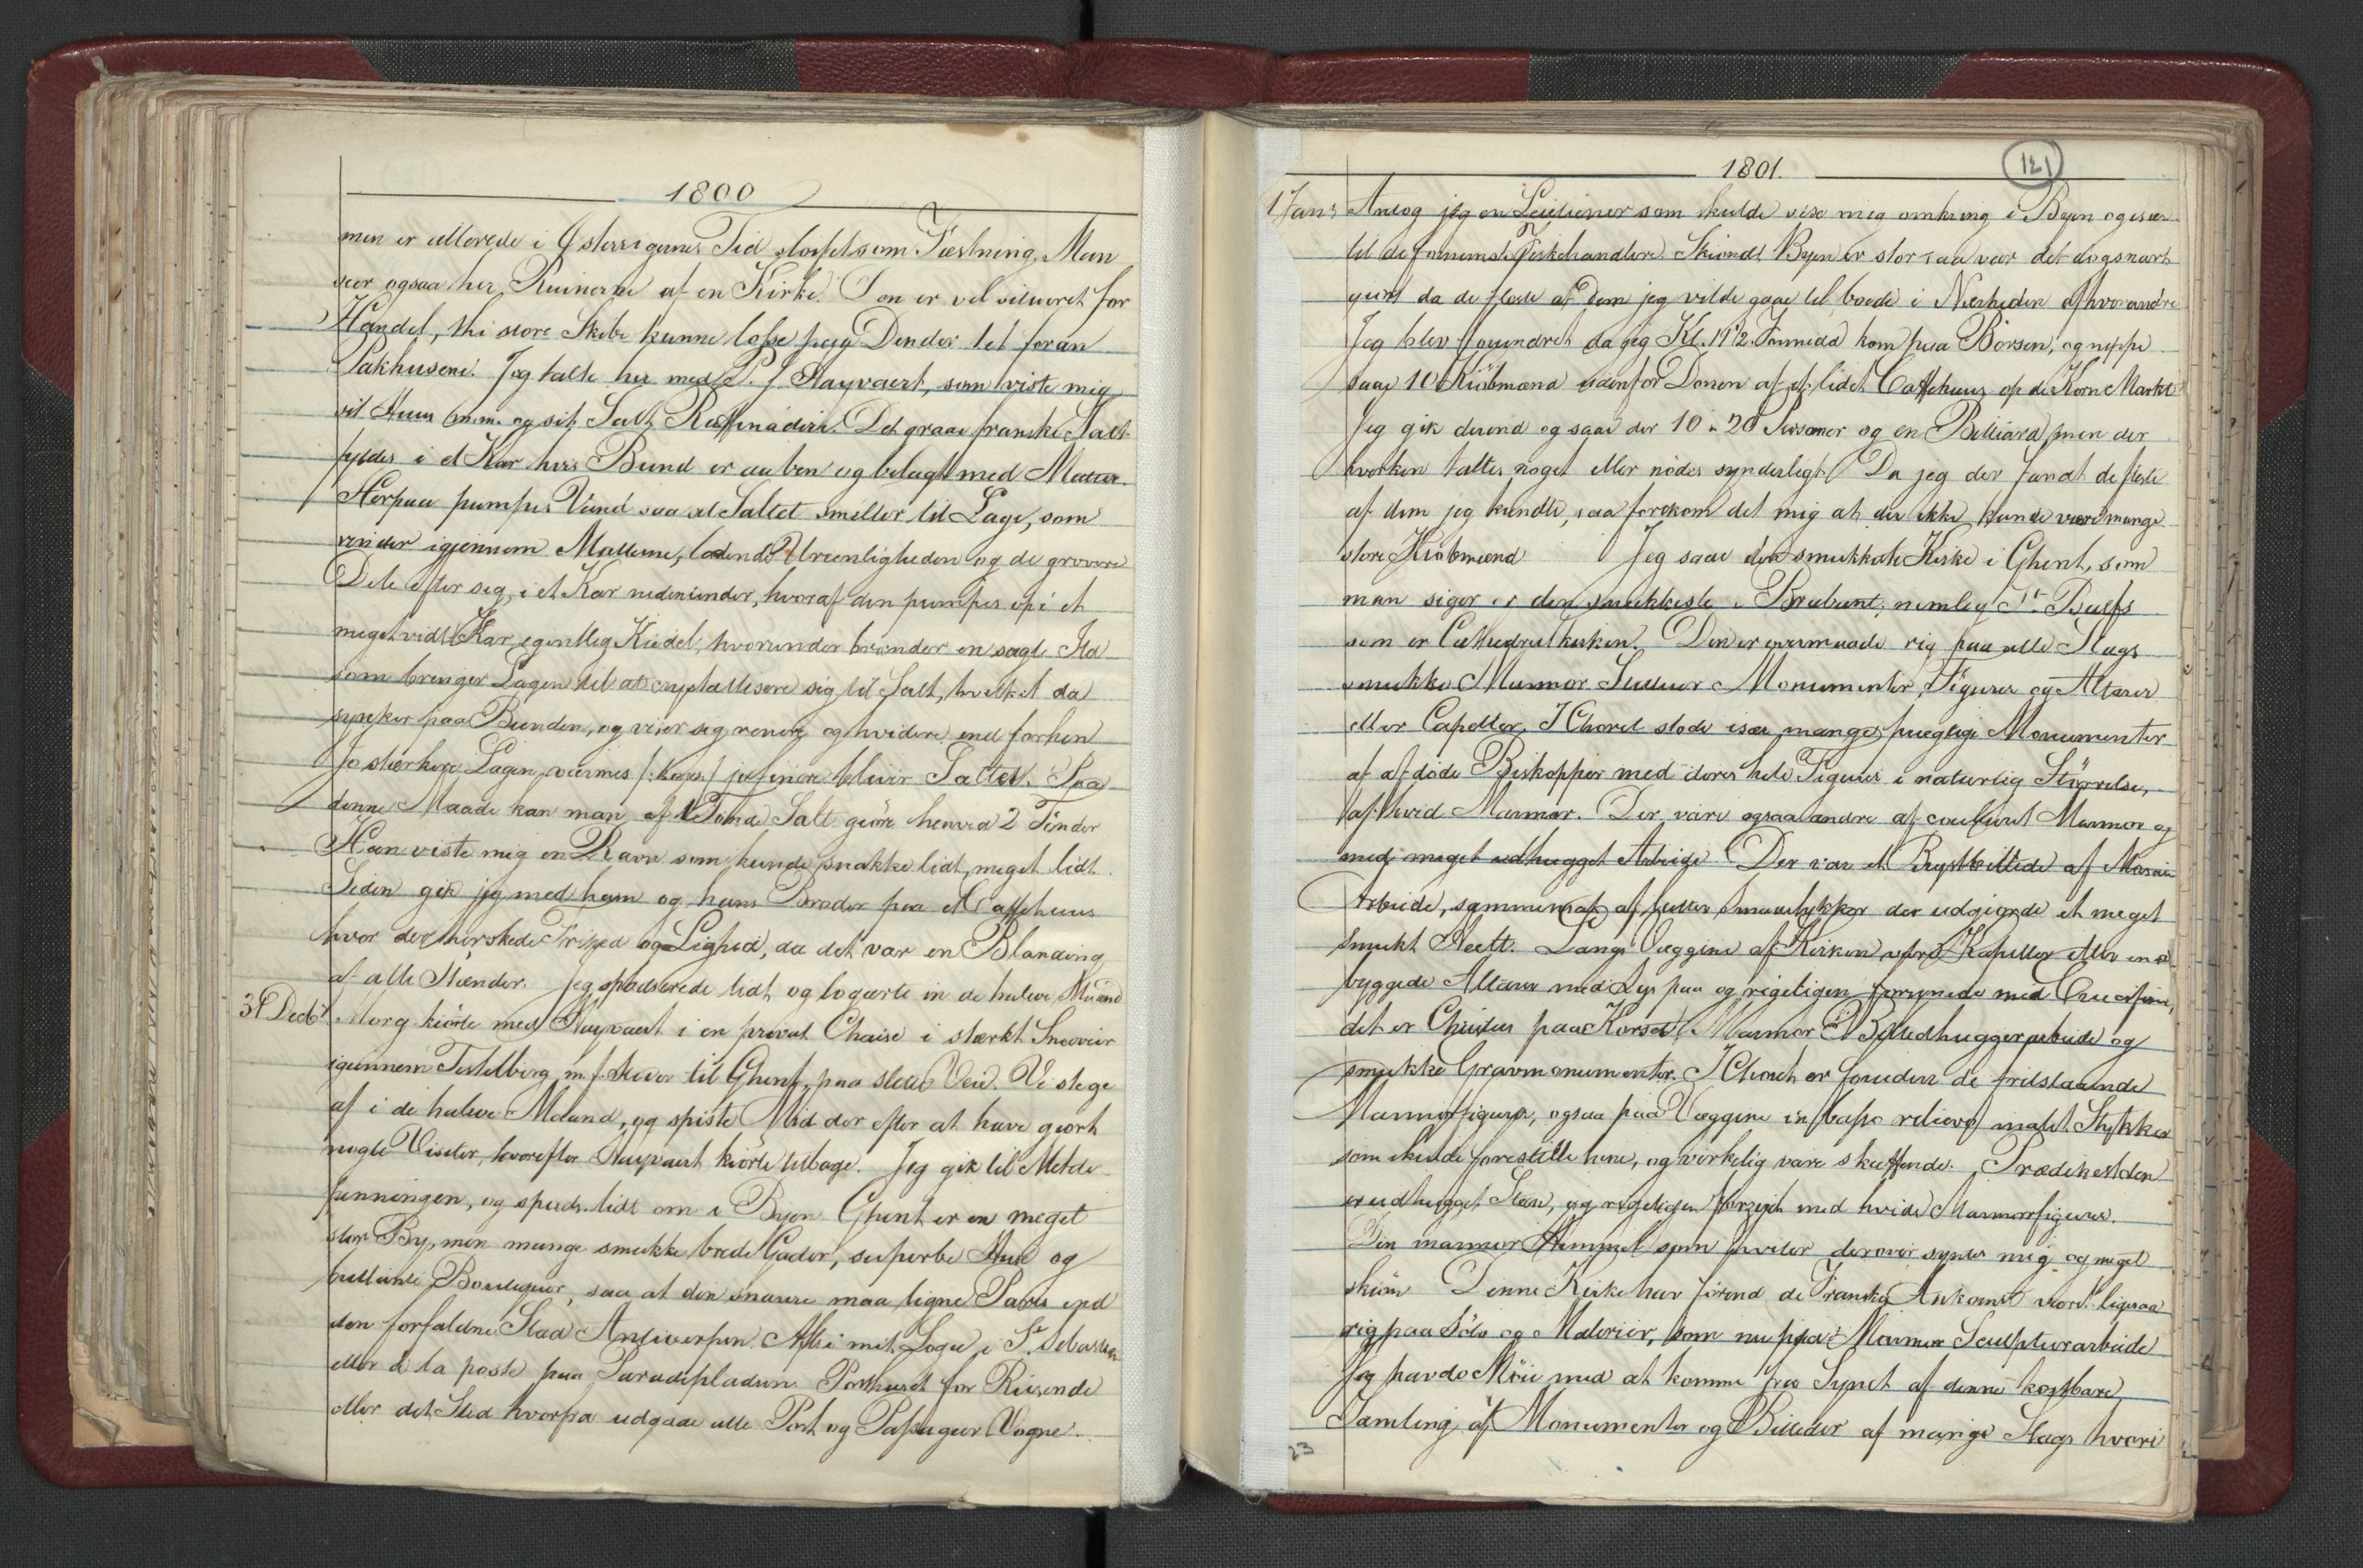 1800
men er allerede i Østerrigernes Tid sløifet som Fæstning. Man
seer ogsaa her Ruinerne af en Kirke. Den er vel situeret for
Handel, thi store Skibe kunne losse paa Dender tet foran
Pakhusene. Jeg talte her med P. J. Stayvaert, som viste mig
sit Huus m.m. og sit Salt Raffinaderie. Det graae franske Salt
fyldes i et Kar hvis Bund er aaben og belagt med Matter.
Herpaa pumpes Vand saa at Saltet smelter til Lage, som
rinder igiennem Matterne, ladende Ureenligheden og de grovere
Dele efter sig, i et Kar nedenunder, hvoraf den pumpes op i et
meget vidt Kar, egentlig Kiedel, hvorunder brænder en sagte Ild
som bringer Lagen til at crystallisere sig til Salt, hvilket da
synker paa Bunden, og viser sig renere og hvidere end forhen
Jo stærkere Lagen varmes /: koges / jo finere bliver Saltet. Paa
denne Maade kan man af 1 Tønde Salt giøre henved 2 Tønder
Han viste mig en Ravn som kunde snakke lidt, meget lidt.
Siden gik jeg med ham og hans Broder paa et Caffehuus
hvor der herskede Frihed og Lighed, da det var en Blanding
af alle Stænder. Jeg spadserede lidt og logerte in de halve Maand
31 Decbr Morg kiørte med Stayvaert i en privat Chaise i stærkt Sneeveir
igiennem Testelberg m. f. Steder til Ghent, paa slette Vei. Vi stege
af i de halve Maand, og spiste Mid der efter at have giort
nogle Visiter, hvorefter Stayvaert kiørte tilbage. Jeg gik til Melde-
penningen, og spads. lidt om i Byen Ghent er en meget
stor By, men mange smukke brede Gader, superbe Huse og
brillante Boutiquer, saa at den snarere maa ligne Paris end
den forfaldne Stad Antwerpen. Aft: i mit Logie i St. Sebastian
eller à la poste paa Paradepladsen. Posthuset for Reisende
eller det Sted hvorfra udgaae alle Post og Passageer Vogne.
1801.
121
1 Janr Antog jeg en Leietiener som skulde vise mig omkring i Byen og især
til de fornemste Fiskehandlere. Skiøndt Byen er stor saa var det dog snart
giort da de fleste af Dem jeg vilde gaae til boede i Nærheden af hverandre
Jeg blev forundret da jeg Kl. 11½ Formidd kom paa Børsen, og neppe
saae 10 Kiøbmænd udenfor Døren af et lidet Caffehuus op de Korn Markt
Jeg gik derind og saae der 10 a 20 Personer og en Billiard, men der
hverken taltes noget eller nødes synderligt Da jeg der fandt de fleste
af dem jeg kiendte, saa forekom det mig at der ikke kunde være mange
store Kiøbmænd Jeg saae den smukkeste Kirke i Ghent, som
man siger er den smukkeste i Brabant, nemlig St. Baefs
som er Cathedralkirken. Den er overmaade rig paa alle Slags
smukke Marmor Statuer Monumenter, Figurer og Altere
eller Capeller, I Choret stode især mange prægtige Monumenter
af afdøde Biskopper med deres hele Figurer i naturlig Størrelse,
af hvid Marmor. Der vare ogsaa andre af couleurt Marmor og
med meget udhugget Arbeide. Der var et Brystbillede af Mosaic
Arbeide, sammensat af smaastykker der udgiorde et meget
smukt Heelt. Langs Væggene af Kirken vare Kapeller eller ind-
byggede Altere med Lys paa og rigeligen forsynede med Crucifixer,
det er Christus paa Korset. Marmor Billedhuggerarbeide og
smukke Gravmonumenter. I Choret er foruden de fritstaaende
Marmorfigurer, ogsaa paa Væggene in basso relievo malet Stykker
som skulde forestille hine, og virkelig vare skuffende. Prædikestolen
er udhugget Steen, og rigeligen forzyret med hvide Marmorfigurer.
Den marmor Himmel som hviler derover syntes mig og meget
skiøn Denne Kirke har førend de Franskes Ankomst været ligesaa
rig paa Sølv og Malerier, som nu paa Marmor Sculpturarbeide
Jeg havde Møie med at komme fra Synet af denne kostbare
Samling af Monumenter og Billeder af mange Slags hvori
23